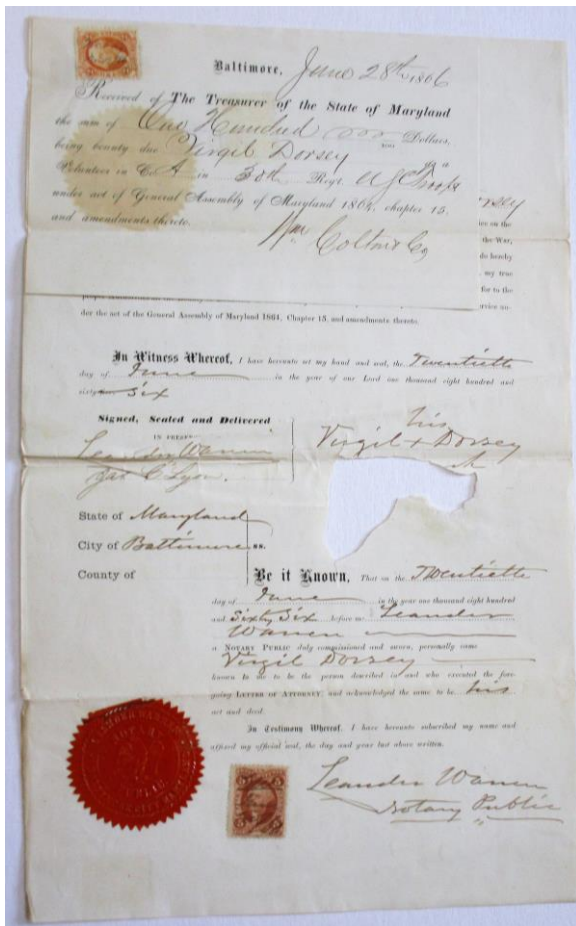 Baltimore, June 28th 1866
Received of The Treasurer of the State of Maryland
the sum of One Hundred Dollars,
being bounty due Virgil Dorsey as a
Volunteer in Co. A in 30th Regt. U S C Troops
under act of General Assembly of Maryland 1864, chapter 15,
and amendments thereto.
Wm Colton & Co
rsey
on the
the War,
do hereby
my true
for to the
der the act of the General Assembly of Maryland 1864, Chapter 15, and amendments thereto.
In Witness Whereof, I have hereunto set my hand and seal, the Twentieth
day of June in the year of our Lord one thousand eight hundred and
sixty Six
Signed, Sealed and Delivered
IN PRESE
Leander Warren
Jas C Lyon.
his
Virgil + Dorsey
State of Maryland
City of Baltimore ss.
County of
Be it Known, That on the Twentieth
day of June in the year one thousand eight hundred
and Sixty Six before me Leander
Warren
a NOTARY PUBLIC duly commissioned and sworn, personally came
Virgil Dorsey
known to me to be the person described in and who executed the fore-
going LETTER OF ATTORNEY, and acknowledged the same to be his
act and deed.
In Testimony Whereof, I have hereunto subscribed my name and
affixed my official seal, the day and year last above written.
Leander Warren
Notary Public